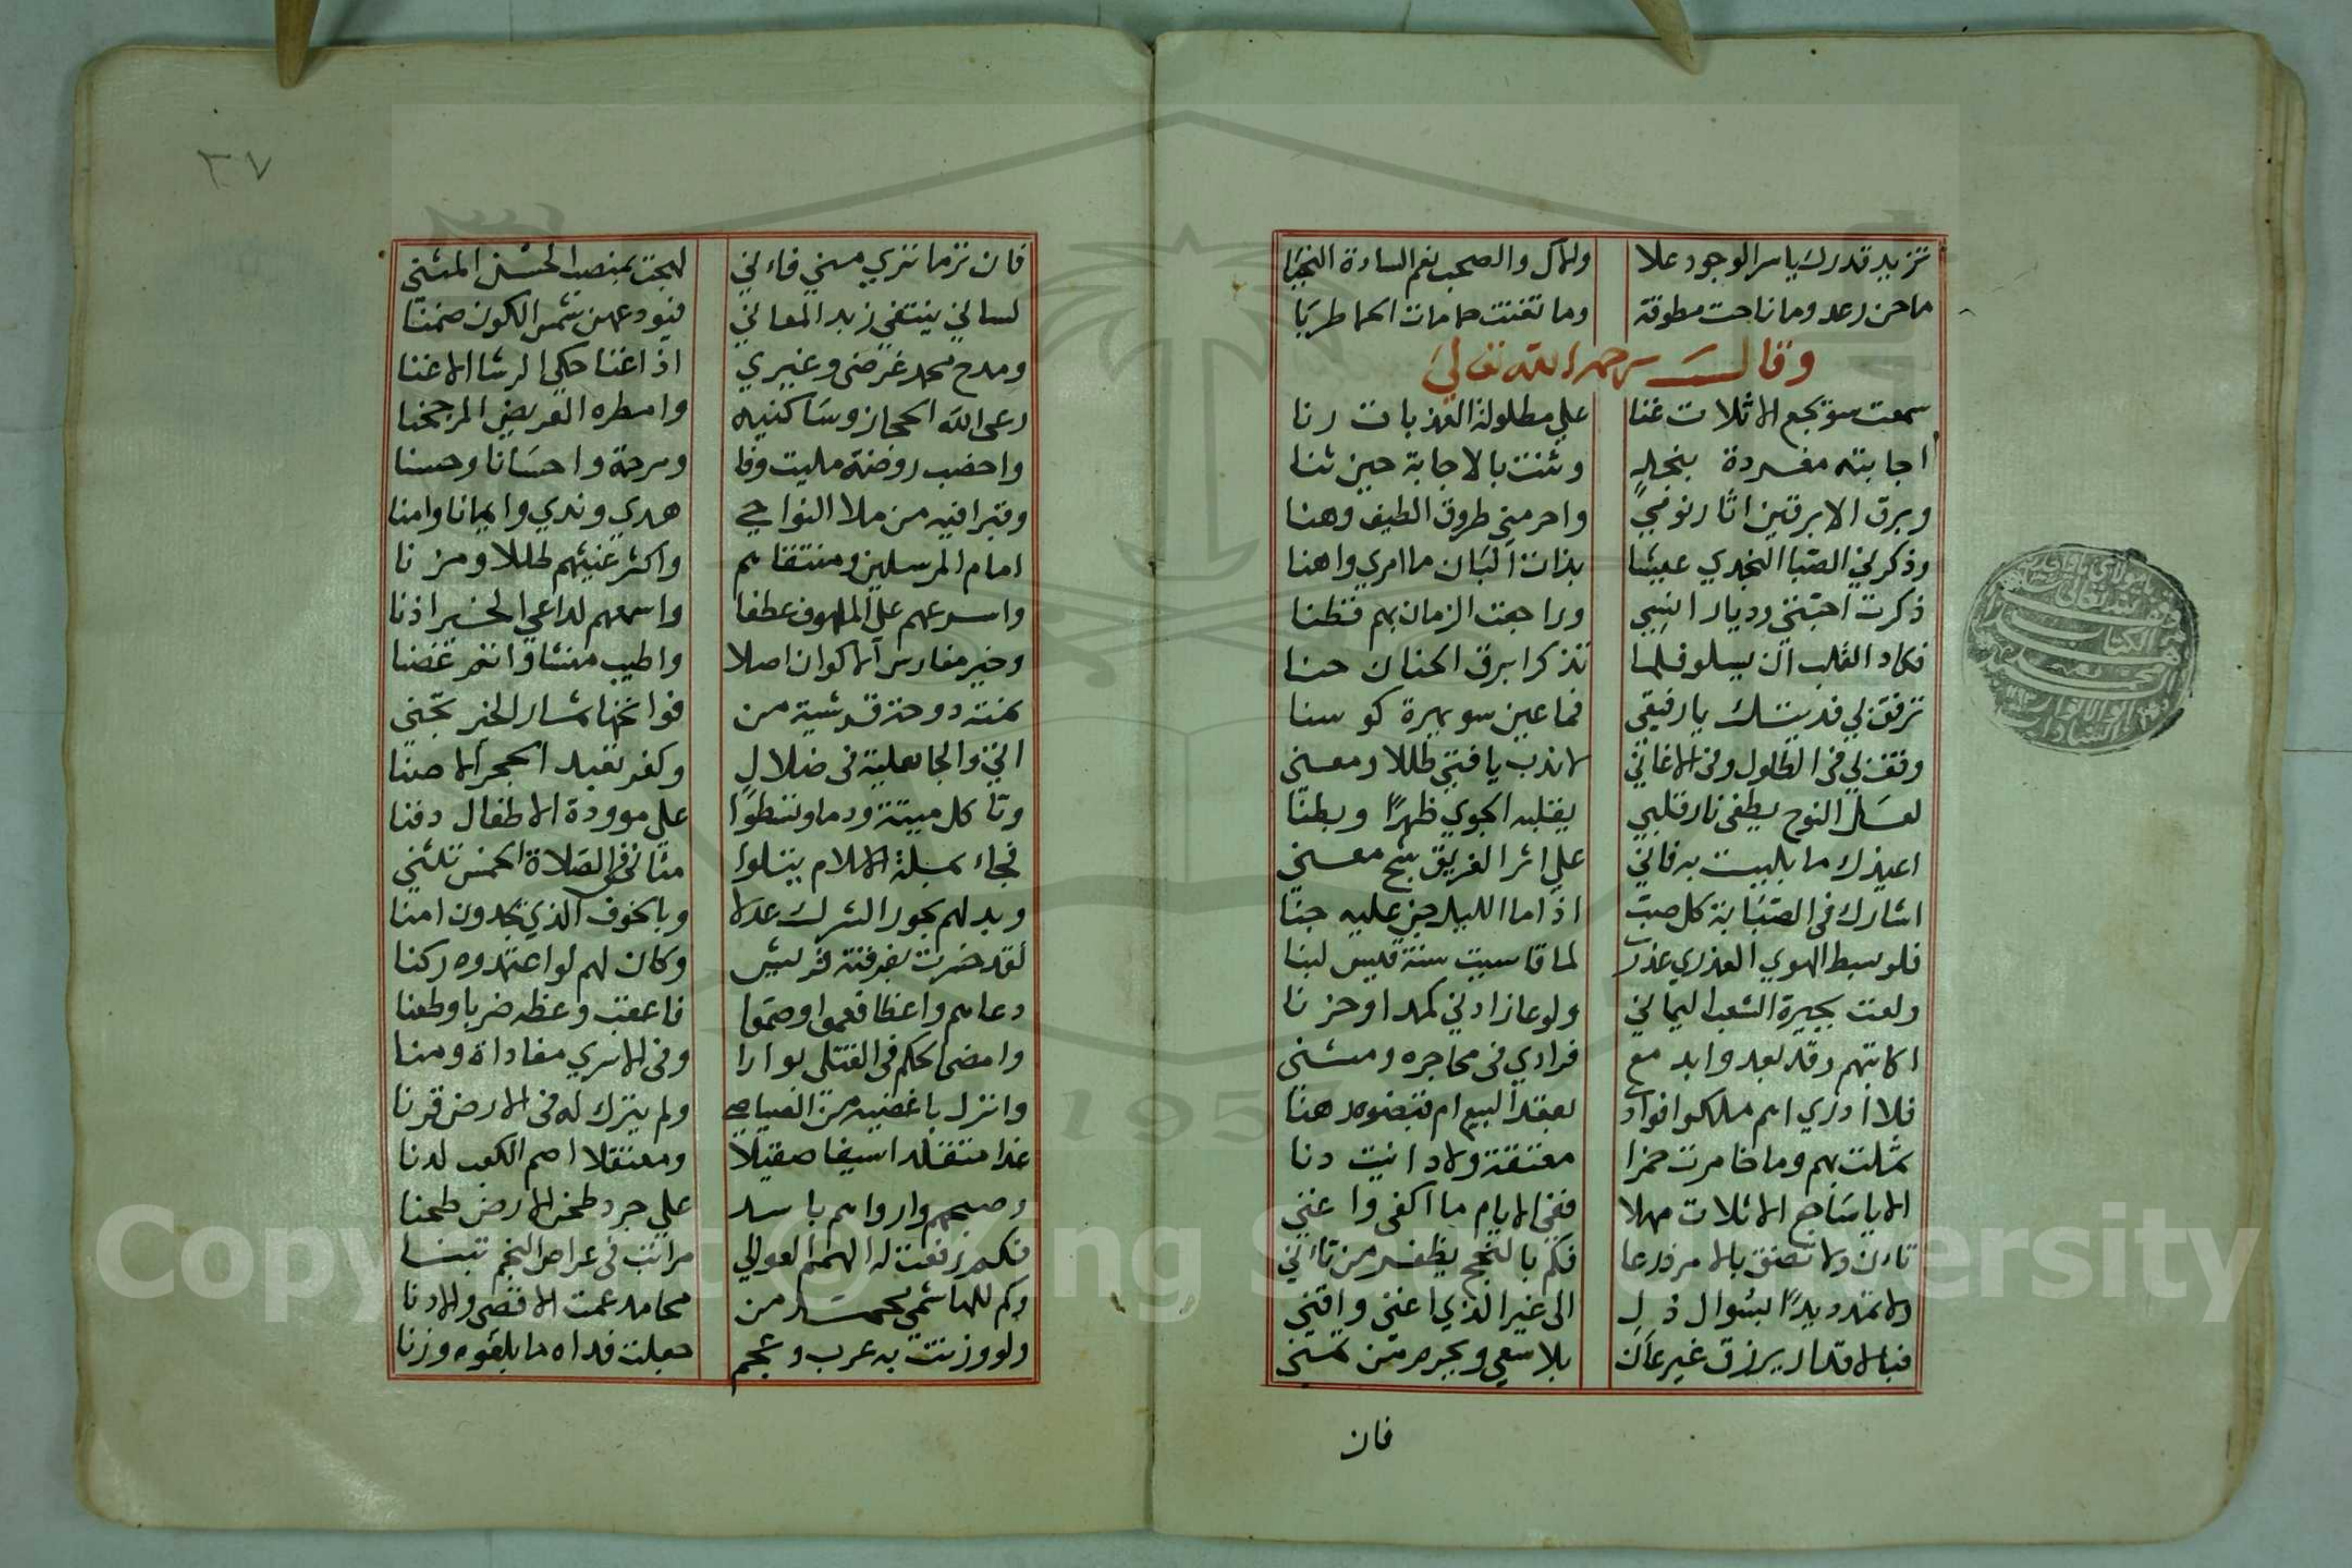 تزيد قدرك ياسر الوجود علا ولال والصحب نعم السادة النجبا
ماحن رعد وما ناحت مطوقة وما تغنت حمامات الحما طربا
وقال رحمه الله تعالى
سمعت سويجع الاثلات غنا علي مطلولة العذبات رنا
اجابته مغردة بنجد وثنت بالاجابة حين ثنا
وبرق الابرقين اثار نومي واحرمني طروق الطيف وهنا
وذكرني الصبا النجدي عيشا بذات البان ما امري واهنا
ذكرت احبتي وديار انسي وراجعت الزمان بهم فظنا
فكاد القلب ان يسلو فلما تذكر ابرق الحنان حنا
ترفق بي فديتك يا رفيقي فما عين سويهرة كو سنا
وقف بي في الطلول وفي الاغاني لاندب يا فتي طللا ومعني
لعل النوح يطفي نار قلبي يقلبه الجوي ظهرا وبطنا
اعيذك ما بليت به فاني علي اثر الفريق شج معني
اشارك في الصبابة كل صب اذا ما الليل جن عليه جنا
فلو سبط الهوي العذري عذر لما قاسيت سنة قيس لبنا
ولعت بجيرة الشعب اليماني ولوعا زادني كمدا وحزنا
اكاتبهم وقد بعدوا بدمع فرادي في محاجره ومثني
فلا ادري اهم ملكوا فوادي بعقد البيع ام قبضوه رهنا
ثملت بهم وما خامرت خمرا معتقة ولا دانيت دنا
الا يا ساجع الاثلات مهلا ففي الايام ما اكفي واغني
تان ولا تضق بالامر ذرعا فكم بالنجح يظفر من تاني
ولا تمدد يدا بسوال ذل الي غير الذي اغني واقني
فبالاقدار يرزق غير عان بلا سعي ويحرم من تمني
فان
٣٧
فان ترما تري مني فاني لهجت بمنصب الحسن المثني
لساني ينتقي زبد المعاني فيودعهن شمس الكون ضمنا
ومدح محمد غرضي وغيري اذا غنا حكي الرشا الاغنا
رعي الله الحجاز وساكنيه وامطره العريض المرجحنا
واخصب روضة مليت وفا ومرحمة واحسانا وحسنا
وقبرا فيه من ملا النواحي هدي وندي وايمانا وامنا
امام المرسلين ومنتقاهم واكثر غيثهم طللا ومزنا
واسرعهم علي الملهوف عطفا واسمعهم لداعي الخير اذنا
وخير مغارس الاكوان اصلا واطيب منشا وانعم غصنا
نمته دوحة قرشية من فوانحها ثمار الخير تجني
اتي والجاهلية في ضلال وكفر تعبد الحجر الاصنا
وتاكل ميتة ودما وتسطوا علي موودة الاطفال دفنا
فجاء بملة الاسلام يتلوا مثاني في الصلاة الخمس تثني
وبدلهم بجور الشرك عدلا وبالخوف الذي يجدون امنا
لقد خسرت بفرقته قريش وكان لهم لو اعتمدوه ركنا
دعاهم واعظا فعموا وصموا فاعقب وعظه ضربا وطعنا
وامضي الحكم في القتلي بوارا وفي الاسري مفاداة ومنا
وانزل باغضيه من الصياصي ولم يترك له في الارض قرنا
غدا متقلدا سيفا صقيلا ومعتقلا اصم الكعب لدنا
وصبحهم وارواهم باسد علي جرد طحن الارض طحنا
فكم رفعت له الهمم العوالي مراتب في عراص النجم تبنا
وكم للهاشمي محمد من محامد عمت الاقصي والادنا
ولو وزنت به عرب وعجم جعلت فداه ما بلغوه وزنا